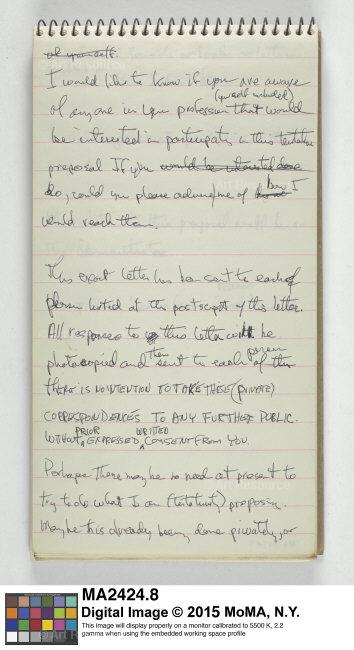 of yourself.
I would like to know if you are aware
(yourself included)
of anyone in your profession that would
be interested in participating in this tentative
proposal If you would be interested done
do, could you please advise me of how I
would reach them.
This exact letter has been sent to each of
person listed at the postscript of this letter.
All responses to this letter will be
photocopied and then sent to each person of the
THERE IS NO INTENTION TO TAKE THESE (PRIVATE)
CORRESPONDENCES TO ANY FURTHER PUBLIC.
WITHOUT PRIOR EXPRESSED WRITTEN CONSENT FROM YOU.
Perhaps there may be no need at present to
try to do what I am (tentatively) proposing.
Maybe this is already being done privately, or
MA2424.8
Digital Image © 2015 MoMA, N.Y.
This image will display properly on a monitor calibrated to 5500 K, 2.2
gamma when using the embedded working space profile